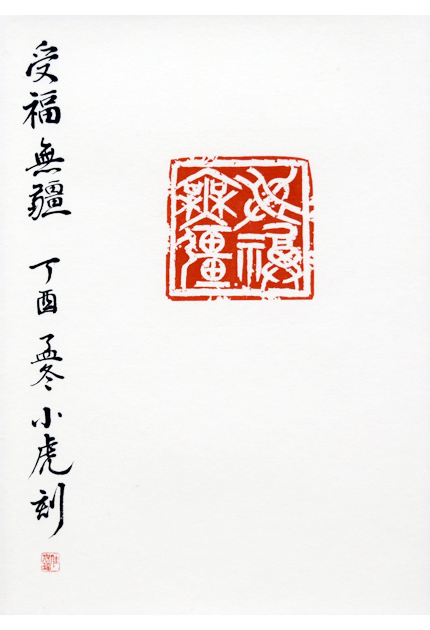 受福無疆 丁酉孟冬小虎刻
受福
無疆